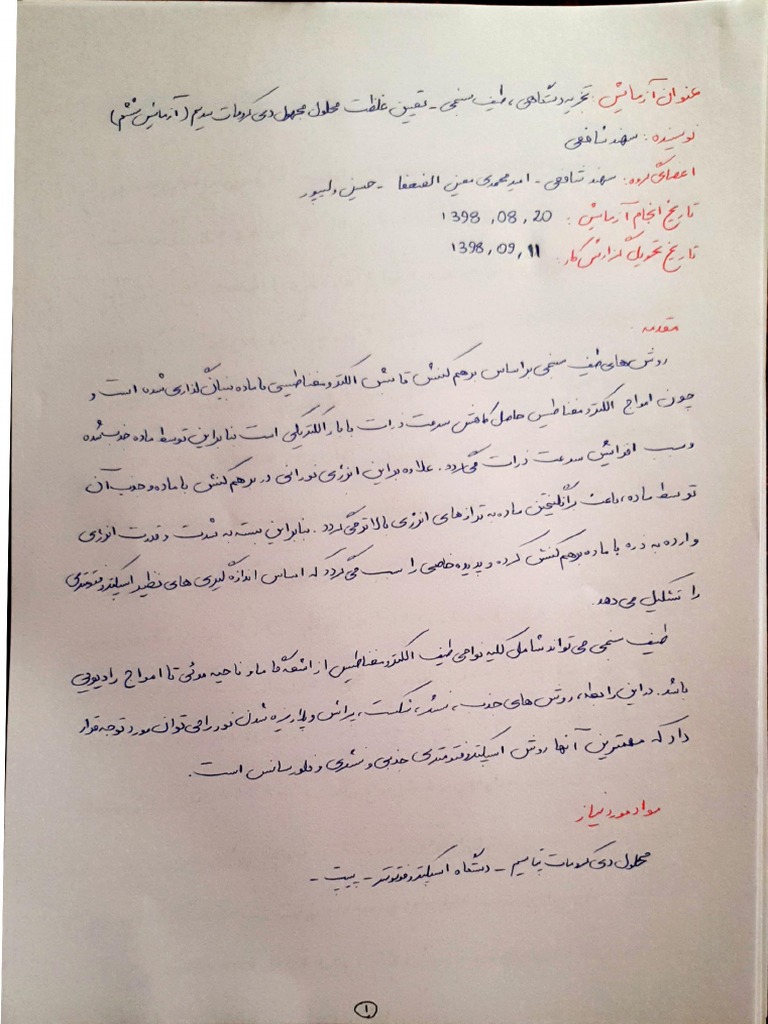 عنوان آزمایش: تجزیه دستگاهی، طیف سنجی - تعیین غلظت محلول مجهول دی کرومات سدیم (آزمایش ششم)
نویسنده: سهند شافعی
اعضای گروه: سهند شافعی - امید محمدی معین الضعفا - حسین ولیپور
تاریخ انجام آزمایش: 1398, 08, 20
تاریخ تحویل گزارش کار: 1398, 09, 11
مقدمه:
روش های طیف سنجی بر اساس برهم کنش تابش الکترومغناطیسی با ماده بنیان گذاری شده است و
چون امواج الکترومغناطیس حاصل کاهش سرعت ذرات با بار الکتریکی است بنابراین توسط ماده جذب شده
و سبب افزایش سرعت ذرات می گردد. علاوه بر این انرژی نورانی در برهم کنش با ماده و جذب آن
توسط ماده، باعث برانگیختن ماده به ترازهای انرژی بالاتر می گردد. بنابراین بسته به شدت و قدرت انرژی
وارده به ذره با ماده برهم کنش کرده و پدیده خاصی را سبب می گردد که اساس اندازه گیری های نظیر اسپکتروفتومتری
را تشکیل می دهد.
طیف سنجی می تواند شامل کلیه نواحی طیف الکترومغناطیس از اشعه گاما و ناحیه مرئی تا امواج رادیویی
باشد. در این رابطه، روش های جذب، نشر، شکست، پراش و پلاریزه شدن نور را می توان مورد توجه قرار
داد که مهمترین آنها روش اسپکتروفتومتری جذبی و نشری و فلورسانس است.
مواد مورد نیاز
محلول دی کرومات پتاسیم - دستگاه اسپکتروفتومتر - پیپت -
۱